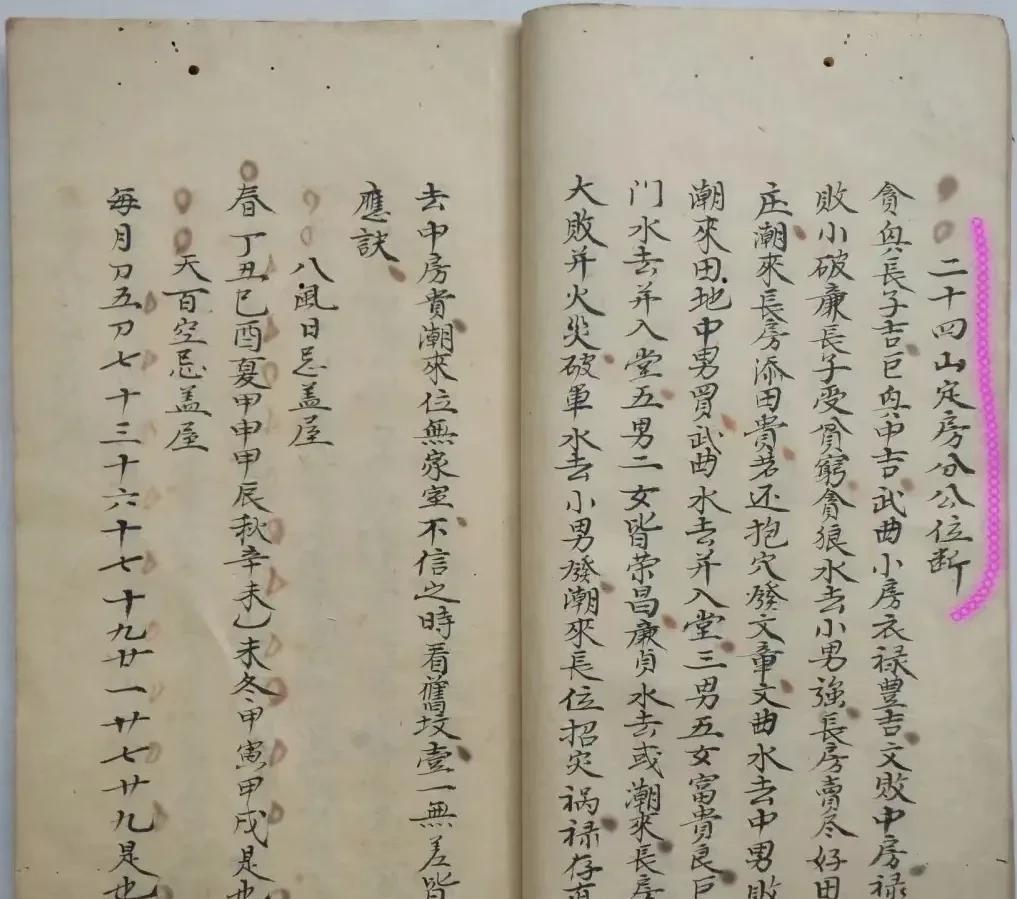 二十四山定房分公位断
貪與長子吉巨與中吉武曲小房衣禄豊吉文敗中房禄
敗小破廉長子受貧窮貪狼水去小男強長房賣尽好田
庄潮來長房添田貴若还抱穴發文章文曲水去中男敗
潮來田地中男買武曲水去并入堂三男五女富貴良巨
门水去并入堂五男二女皆荣昌廉貞水去或潮來長房
大敗并火災破軍水去小男發潮來長位招灾禍禄存
去中房貴潮來位無家室不信之時看舊坟壹一無差皆
應訣
八風日忌盖屋
春丁丑巳酉夏甲申甲辰秋辛未乙未冬甲寅甲戌是也
天百空忌盖屋
每月刀五刀七十三十六十七十九廿一廿七廿九是也